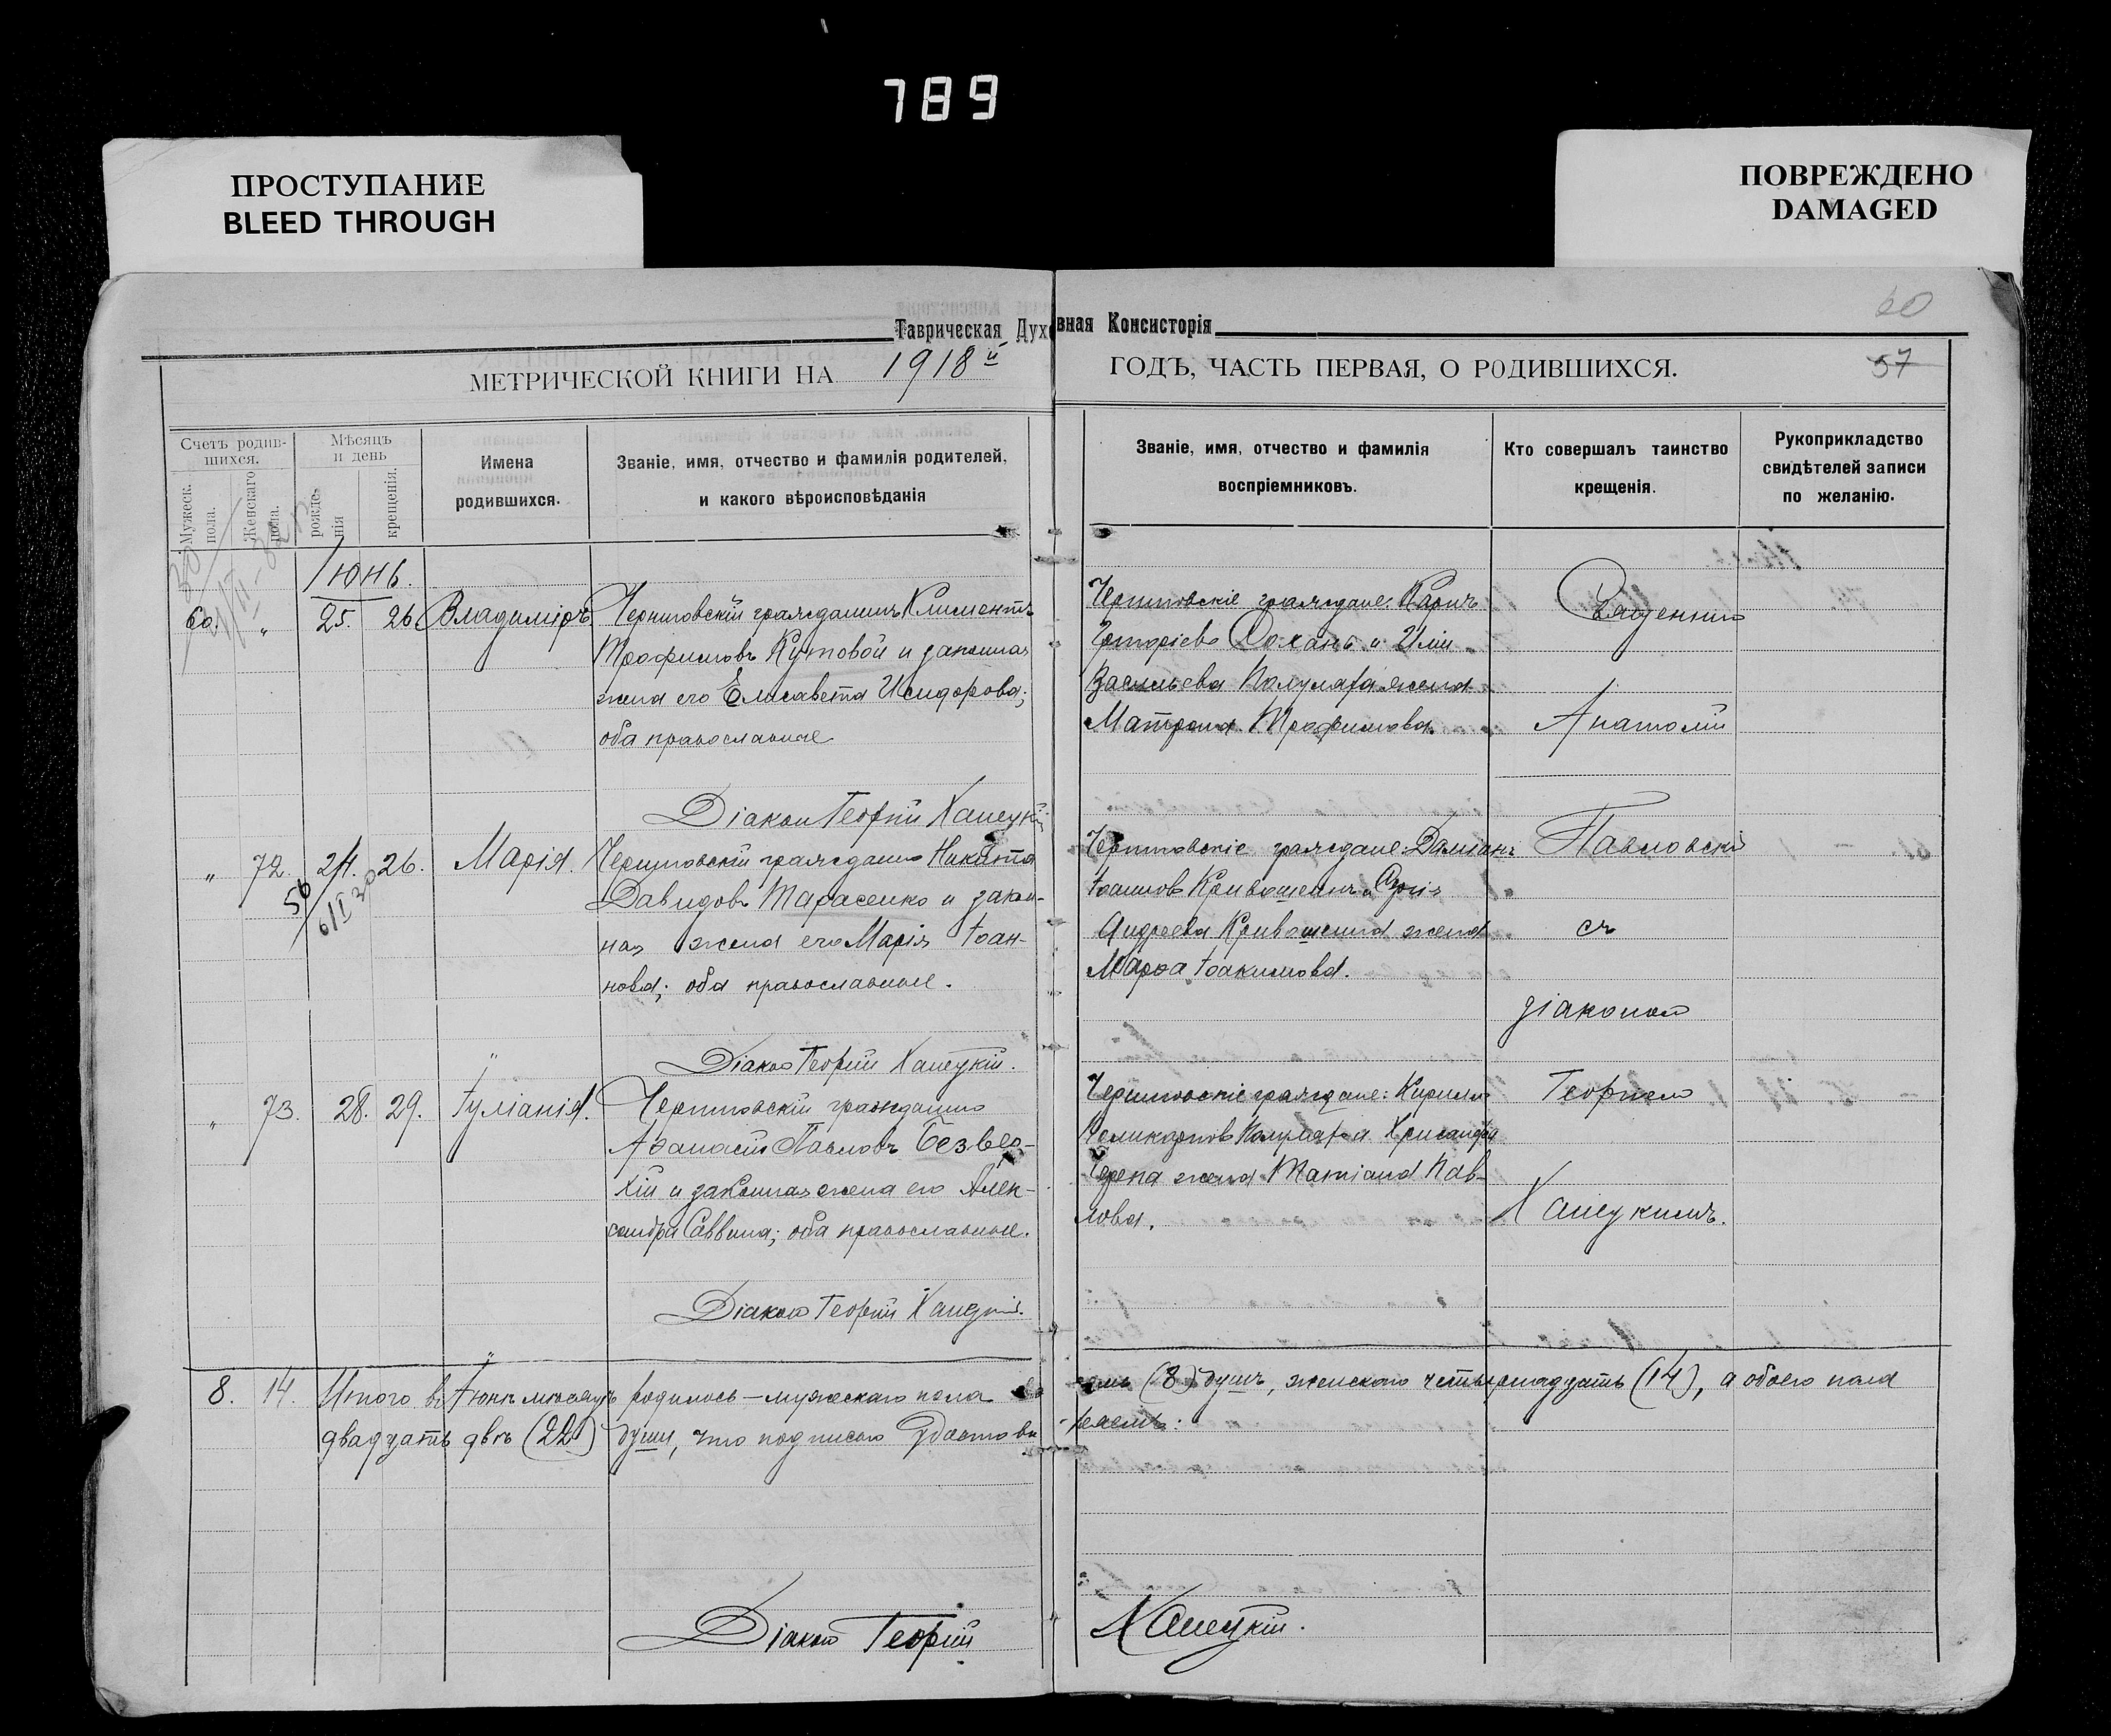 789
ПРОСТУПАНИЕ
BLEED THROUGH
ПОВРЕЖДЕНО
DAMAGED
60
Таврическая Духовная Консисторія
МЕТРИЧЕСКОЙ КНИГИ НА 1918й ГОДЪ, ЧАСТЬ ПЕРВАЯ, О РОДИВШИХСЯ.
57
Счетъ родив-
шихся.
Мужеск.
пола.
Женскаго
пола.
Мѣсяцъ
и день
рожде-
нія
крещенія.
Имена
родившихся.
Званіе, имя, отчество и фамилія родителей,
и какого вѣроисповѣданія
Званіе, имя, отчество и фамилія
воспріемниковъ.
Кто совершалъ таинство
крещенія.
Рукоприкладство
свидѣтелей записи
по желанію.
Іюнь.
60. " 25. 26 Владиміръ
Черниговскій гражданинъ Климентъ
Трофимовъ Кутовой и законная
жена его Елисавета Исидорова;
оба православные
Діаконъ Георгій Ханецкій
Черниговскіе граждане: Карпъ
Григоріевъ Соханъ и Иліи
Васильева Полумата жена
Матрона Трофимова.
Священникъ
Анатолій
Павловскій
съ
діакономъ
Георгіемъ
Ханецкимъ.
" 72. 24. 26. Марія.
56
6/I 30
Черниговскій гражданинъ Никита
Давидовъ Тарасенко и закон-
ная жена его Марія Іоан-
нова; оба православные.
Діаконъ Георгій Ханецкій.
Черниговскіе граждане: Даміанъ
Іоанновъ Кривошеинъ и
Андреева Кривошеина жена
Марѳа Іоакимова.
" 73. 28. 29. Іуліанія.
Черниговскій гражданинъ
Аѳанасій Павловъ Безвер-
хій и законная жена его Алек-
сандра Саввина; оба православные.
Діаконъ Георгій Ханецкій.
Черниговскіе граждане: Кириллъ
Поликарповъ Полумата Хрисанфа
жена Татіана Пав-
лова.
8. 14. Итого въ Іюнѣ мѣсяцѣ родилось – мужескаго пола восемь (8) душъ, женскаго четырнадцать (14), а обоего пола
двадцать двѣ (22) души, что подписью удостовѣряемъ:
Діаконъ Георгій Ханецкій.